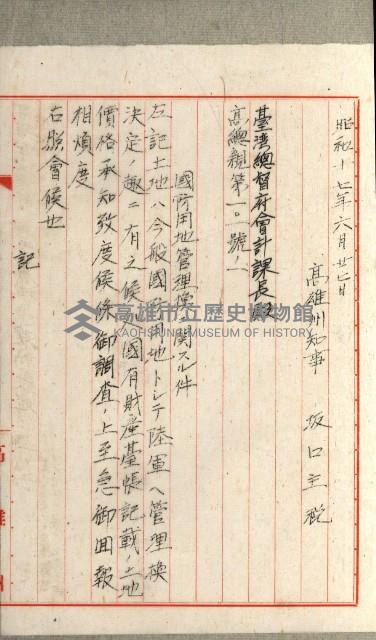 昭和十七年六月廿七日
高雄州知事 坂口主税
臺灣總督府會計課長殿
高總親第一〇一號ノ一
國防用地管理換ニ關スル件
左記土地ハ今般國防用地トシテ陸軍ヘ管理換
決定ノ趣ニ有之候ニ國有財產臺帳記載ノ土地
價格承知致度候條御調査ノ上至急御回報
相煩度
右照會候也
記
高雄市立歷史博物館
KAOHSIUNG MUSEUM OF HISTORY
高雄州